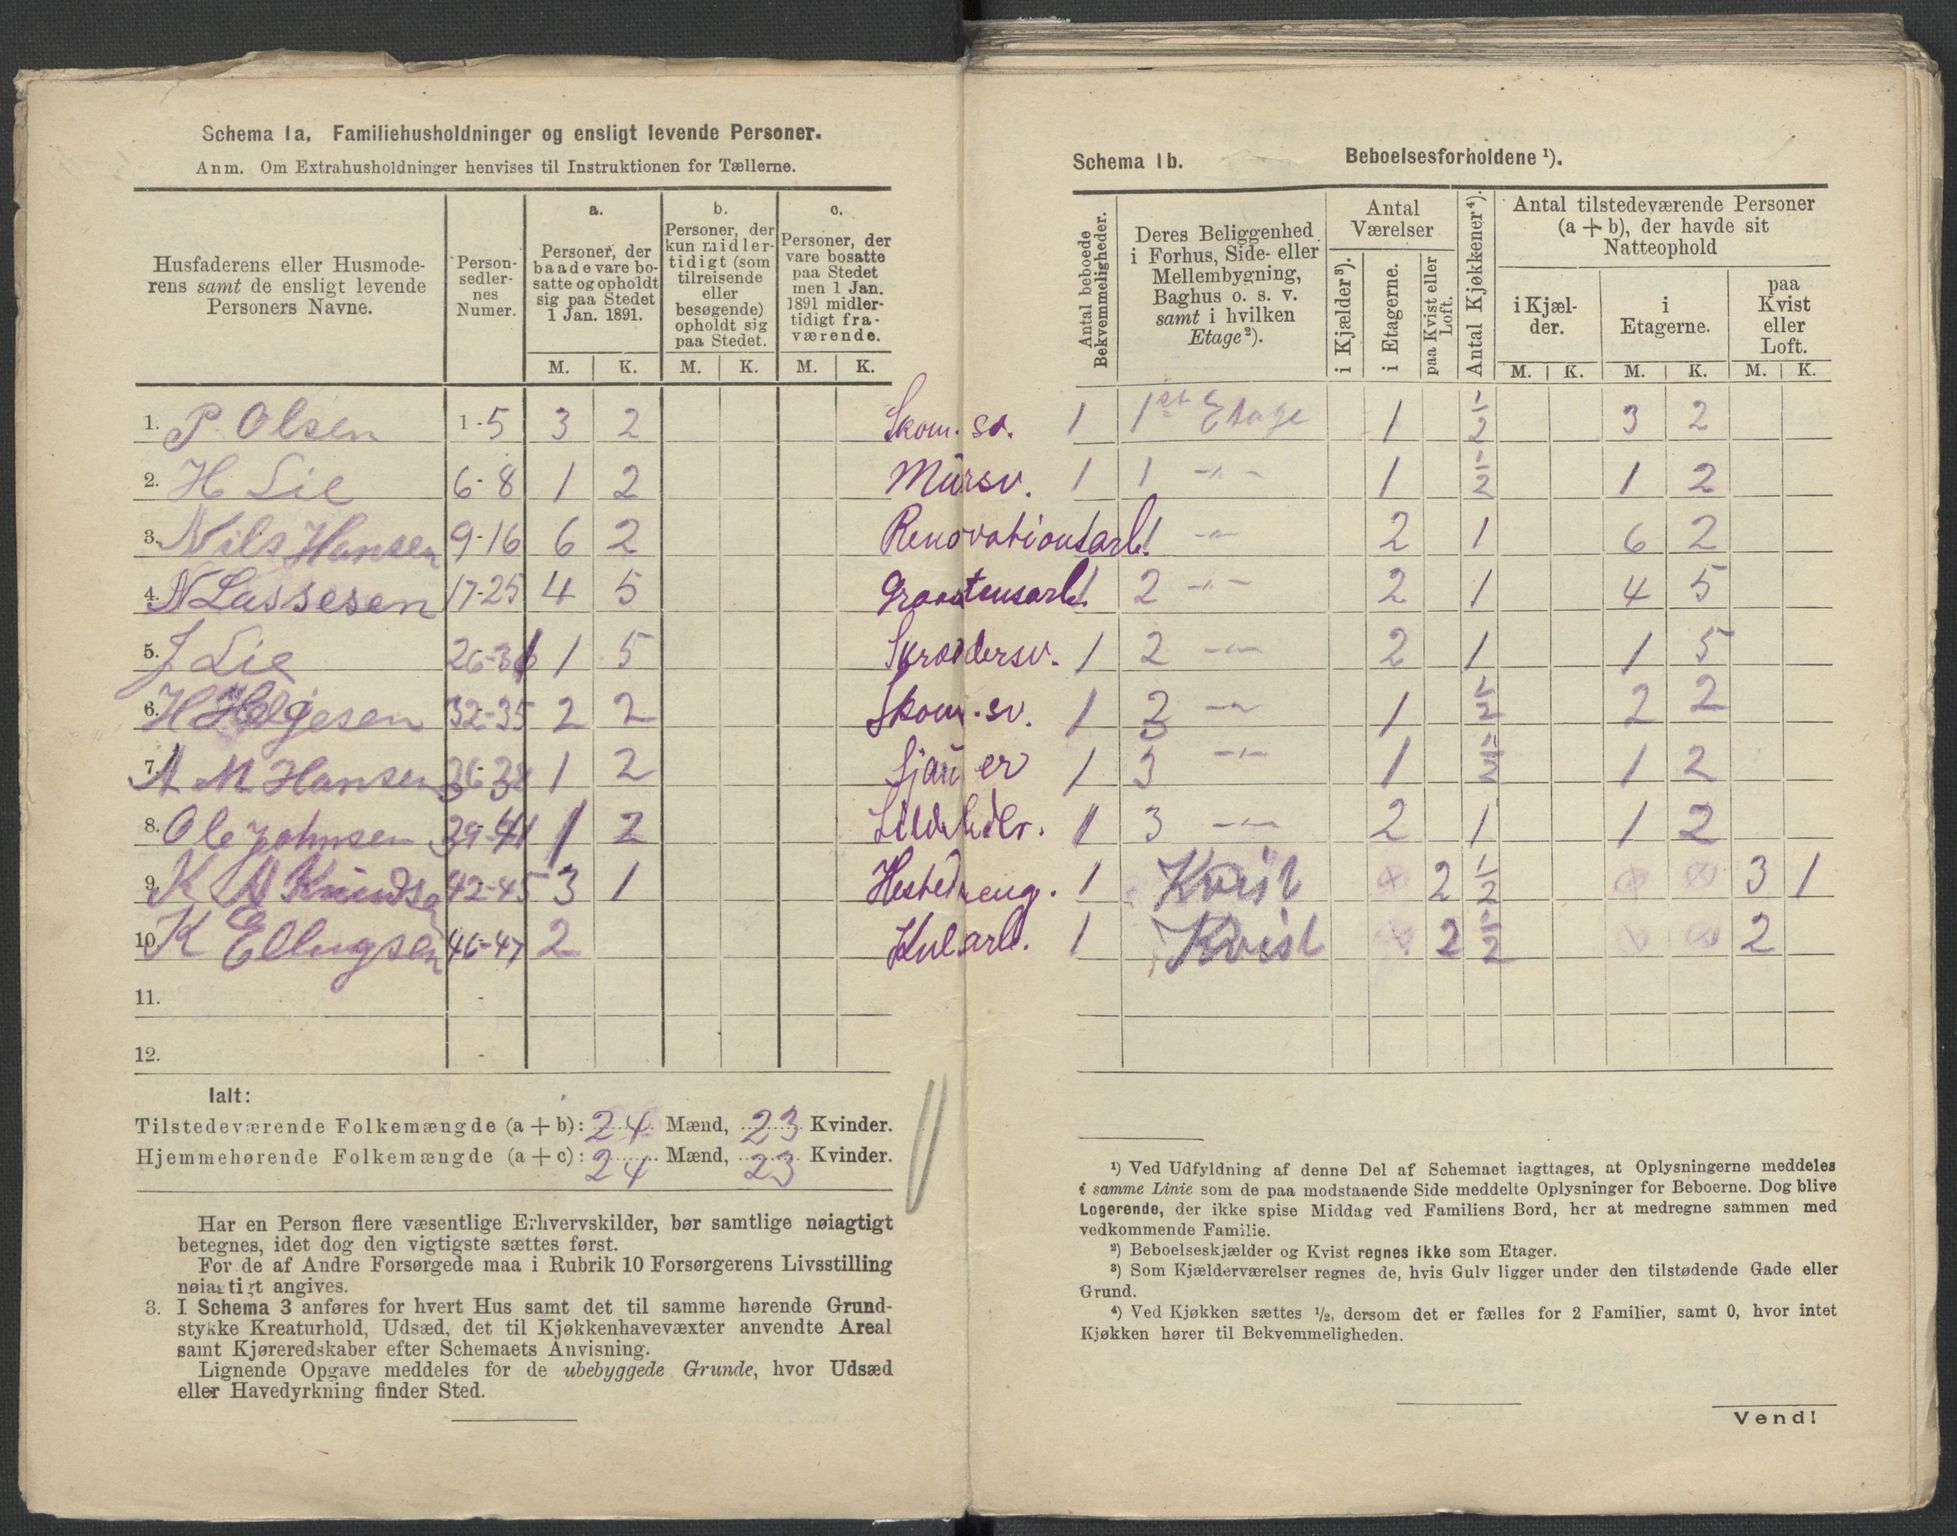 Schema 1a. Familiehusholdninger og ensligt levende Personer.
Anm. Om Extrahusholdninger henvises til Instruktionen for Tællerne.
Husfaderens eller Husmoderens samt de ensligt levende Personers Navne.
Personsedlernes Numer.
a. Personer, der baade vare bosatte og opholdt sig paa Stedet 1 Jan. 1891.
b. Personer, der kun midlertidigt (som tilreisende eller besøgende) opholdt sig paa Stedet.
c. Personer, der vare bosatte paa Stedet men 1 Jan. 1891 midlertidigt fraværende.
M. K. M. K. M. K.
1. P. Olsen 1-5 3 2
2. H Lie 6-8 1 2
3. Nils Hansen 9-16 6 2
4. N Lassesen 17-25 4 5
5. J Lie 26-31 1 5
6. H Helgesen 32-35 2 2
7. A M Hansen 36-38 1 2
8. Ole Johnsen 39-41 1 2
9. K A Knudsen 42-45 3 1
10. K Ellingsen 46-47 2
11.
12.
Ialt:
Tilstedeværende Folkemængde (a + b): 24 Mænd, 23 Kvinder.
Hjemmehørende Folkemængde (a + c): 24 Mænd, 23 Kvinder.
Har en Person flere væsentlige Erhvervskilder, bør samtlige nøiagtigt
betegnes, idet dog den vigtigste sættes først.
For de af Andre Forsørgede maa i Rubrik 10 Forsørgerens Livsstilling
nøiagtigt angives.
3. I Schema 3 anføres for hvert Hus samt det til samme hørende Grund-
stykke Kreaturhold, Udsæd, det til Kjøkkenhavevæxter anvendte Areal
samt Kjøreredskaber efter Schemaets Anvisning.
Lignende Opgave meddeles for de ubebyggede Grunde, hvor Udsæd
eller Havedyrkning finder Sted.
Schema 1b. Beboelsesforholdene ¹).
Antal beboede Bekvemmeligheder.
Deres Beliggenhed i Forhus, Side- eller Mellembygning, Baghus o. s. v. samt i hvilken Etage ²).
Antal Værelser
i Kjælder ³).
i Etagerne.
paa Kvist eller Loft.
Antal Kjøkkener ⁴).
Antal tilstedeværende Personer (a + b), der havde sit Natteophold
i Kjælder.
i Etagerne.
paa Kvist eller Loft.
M. K. M. K. M. K.
Skom. sv. 1 1st Etage 1 1/2 3 2
Mursv. 1 1 -"- 1 1/2 1 2
Renovationsarb. 1 -"- 2 1 6 2
1 2 -"- 2 1 4 5
Skræddersv. 1 2 -"- 2 1 1 5
Skom. sv. 1 2 -"- 1 1/2 2 2
Sjauer 1 3 -"- 1 1/2 1 2
1 3 -"- 2 1 1 2
Hestedreng. 1 Kvist 2 1/2 3 1
Kularb. 1 Kvist 2 1/2 2
¹) Ved Udfyldning af denne Del af Schemaet iagttages, at Oplysningerne meddeles
i samme Linie som de paa modstaaende Side meddelte Oplysninger for Beboerne. Dog blive
Logerende, der ikke spise Middag ved Familiens Bord, her at medregne sammen med
vedkommende Familie.
²) Beboelseskjælder og Kvist regnes ikke som Etager.
³) Som Kjælderværelser regnes de, hvis Gulv ligger under den tilstødende Gade eller
Grund.
⁴) Ved Kjøkken sættes ¹/₂, dersom det er fælles for 2 Familier, samt 0, hvor intet
Kjøkken hører til Bekvemmeligheden.
Vend!